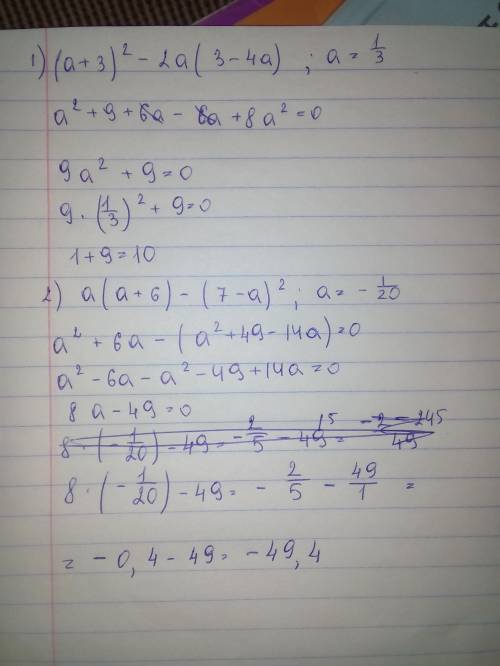 1) (a+3)² - 2a( 3-4a) ; a = 1/3
a² + 9 + 6a - 6a + 8a² = 0
9a² + 9 = 0
9 · (1/3)² + 9 = 0
1 + 9 = 10
2) a(a+6) - (7-a)² ; a = - 1/20
a² + 6a - (a² + 49 - 14a) = 0
a² - 6a - a² - 49 + 14a = 0
8a - 49 = 0
8 · (- 1/20) - 49 = - 2/5 - 49 =
8 · (- 1/20) - 49 = - 2/5 - 49/1 =
= - 0,4 - 49 = - 49,4